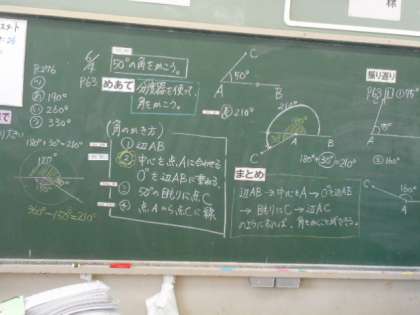 50°の角をかこう。
P63 めあて 分度器を使って、
角をかこう。
あ 190°
い 260°
う 330°
180°+30°=210°
360°-150°=210°
(角のかき方)
① 辺AB
② 中心を点Aに合わせる
0°を辺ABに重ねる
③ 50°の目もりに点C
④ 点Aから点Cに線
C
50°
A
B
あ 210°
210°
A
B
C
180°+30°=210°
まとめ
辺AB→中心をA→0°を辺AB
→目もりにC→辺AC
のようにすれば、角をかくことができる。
振り返り
P63
75°
A
② 160°
C
160°
A